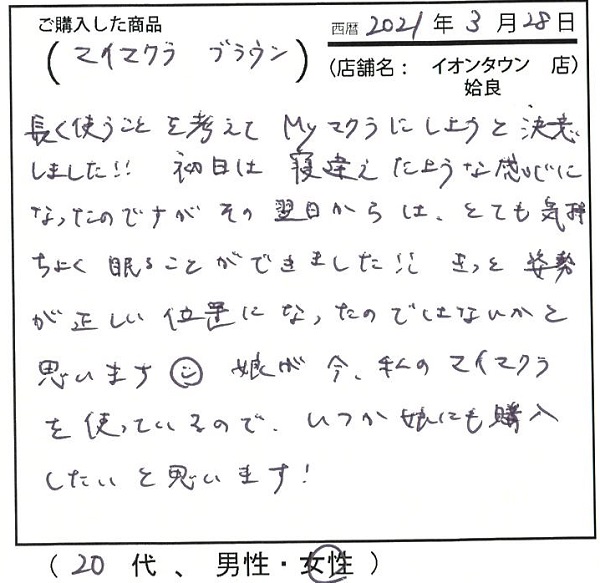 ご購入した商品
(マイマクラ ブラウン)
西暦 2021 年 3 月 28 日
(店舗名: イオンタウン 店)
姶良
長く使うことを考えて Myマクラにしようと決意
しました!! 初日は寝違えたような感じに
なったのですがその翌日からは、とても気持
ちよく眠ることができました!! きっと姿勢
が正しい位置になったのではないかと
思います☺ 娘が今、私のマイマクラ
を使っているので、いつか娘にも購入
したいと思います!
( 20 代 、 男性・女性 )